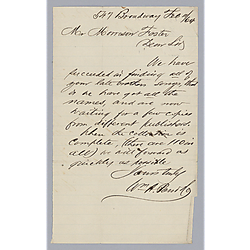 547 Broadway Feb
Mr Morrison Foster
Dear Sir,
We have
succeeded in finding all of
your late brothers songs, that
is we have got all the
names, and are now
waiting for a few copies
from different publishers.
When the collection is
complete, (there are 110 in
all) we will forward as
quickly as possible
Yours truly
Wm A. Pond